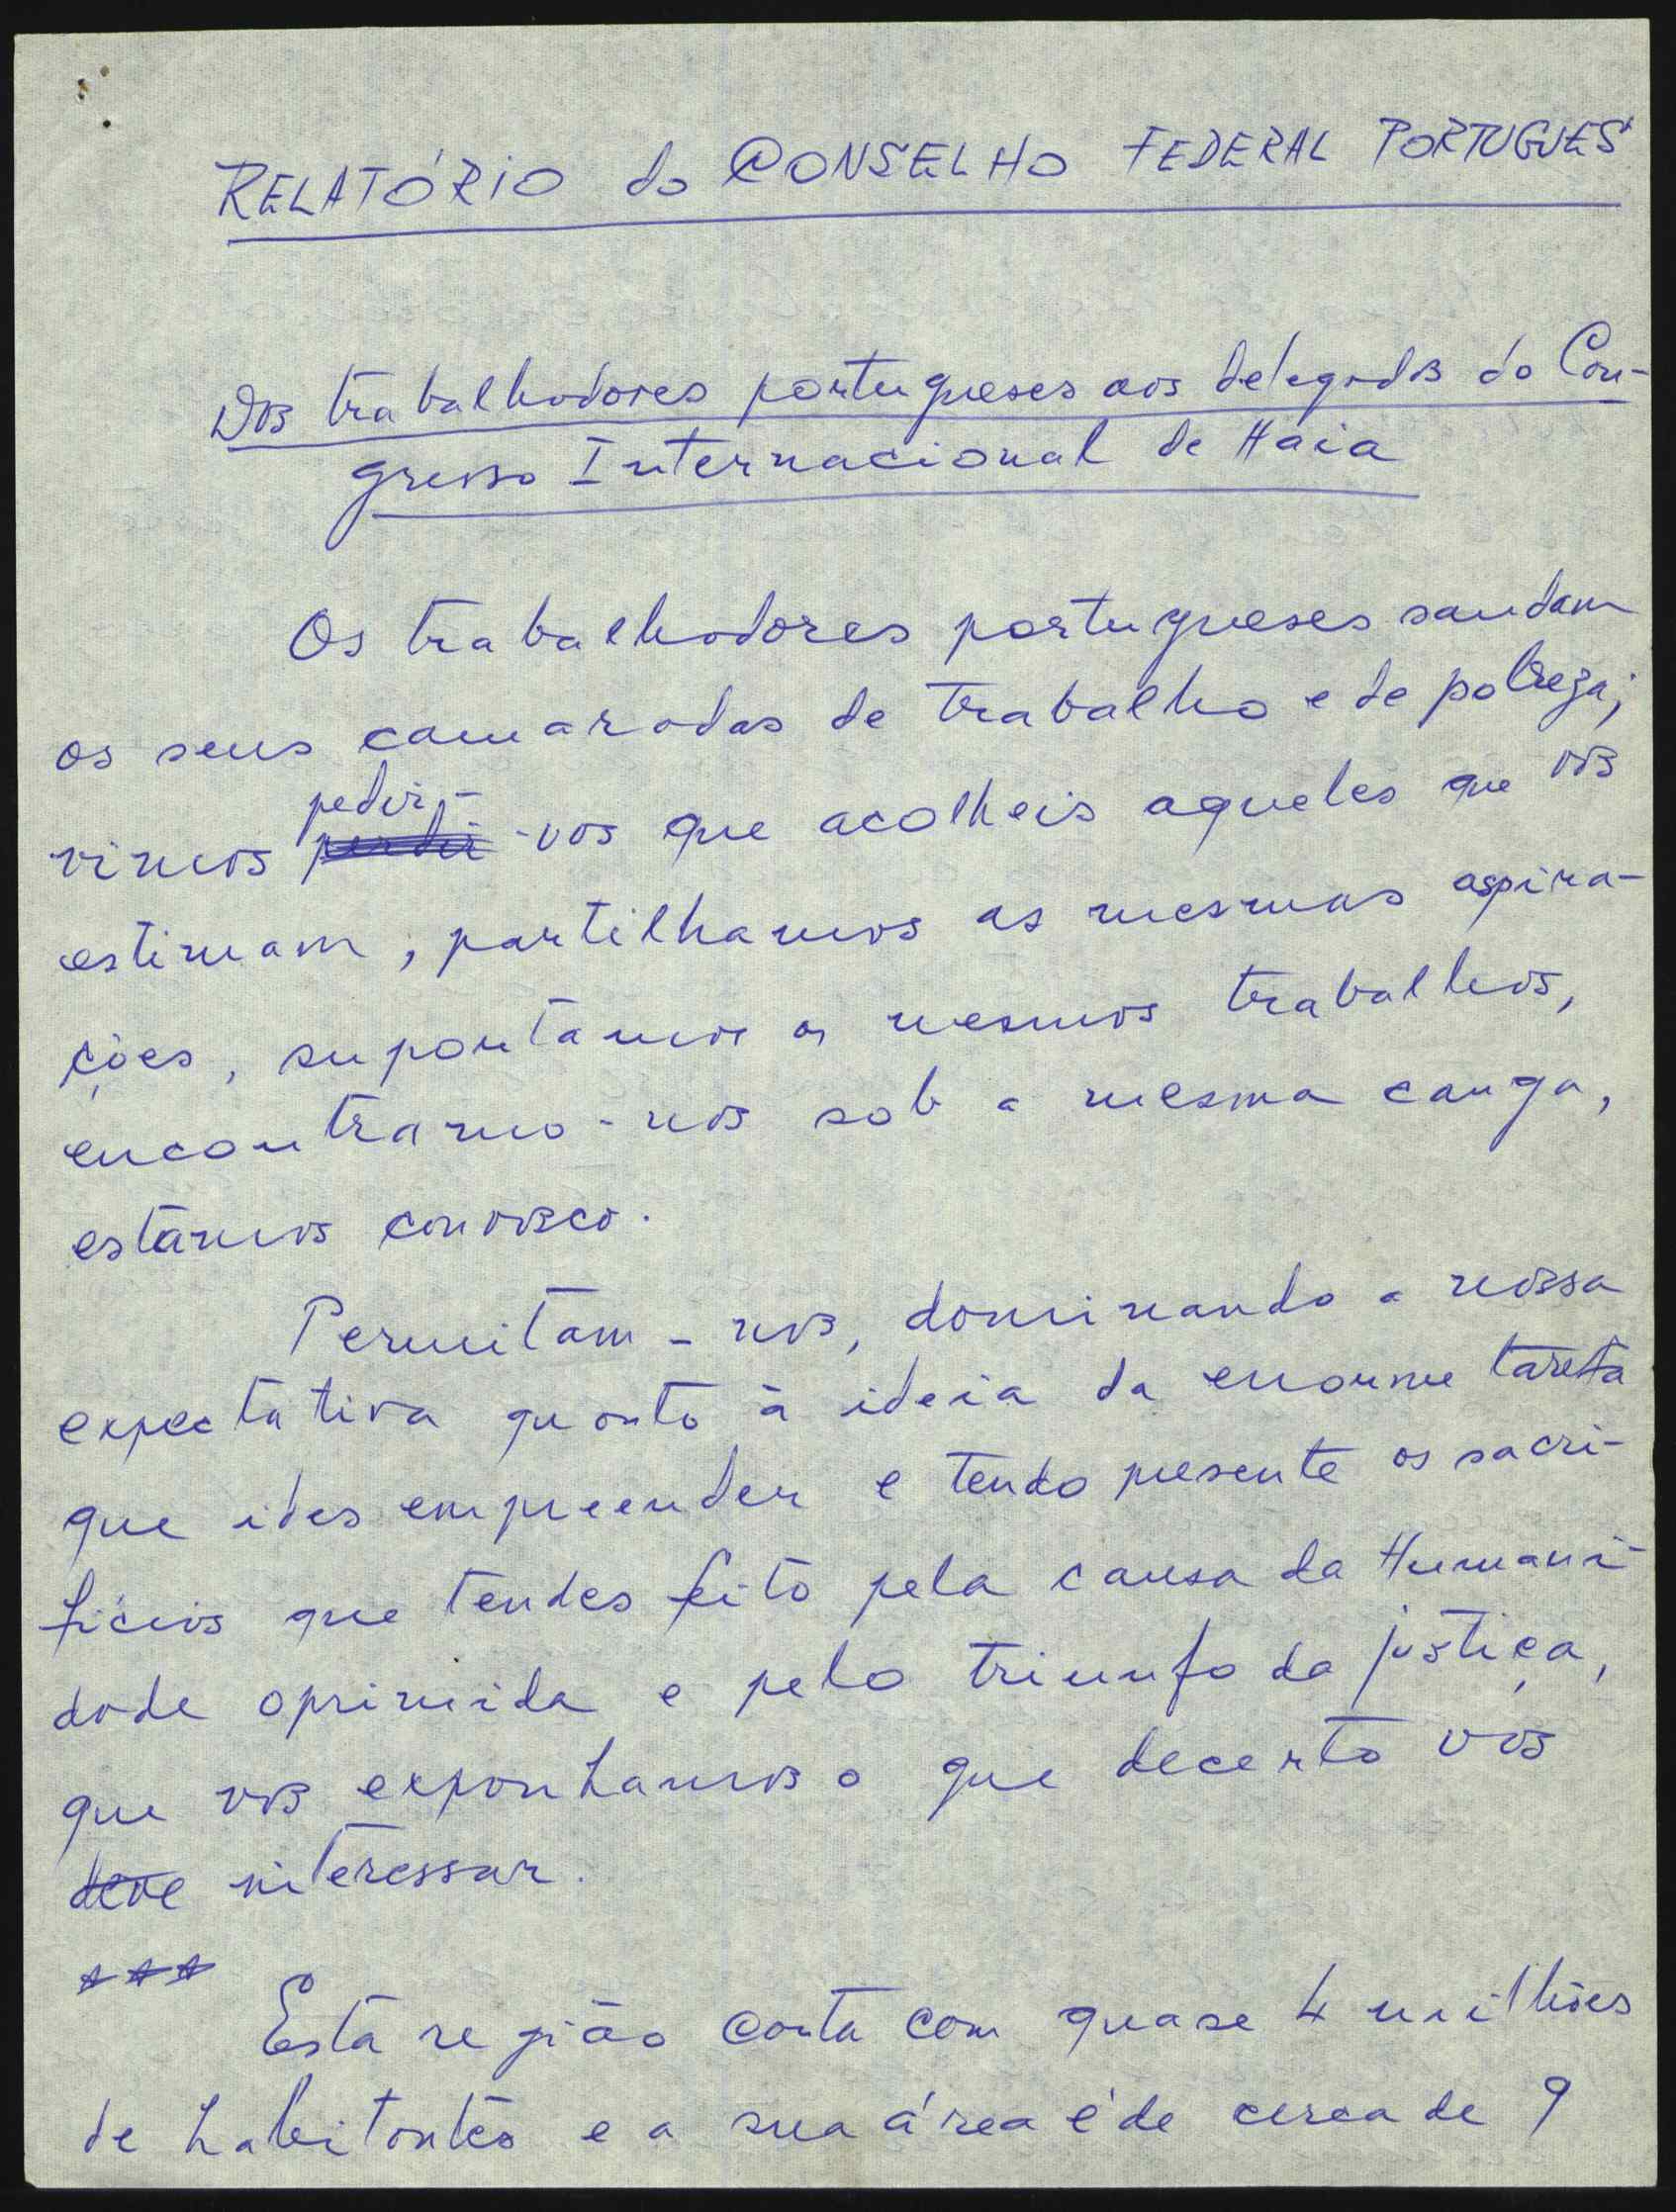 RELATÓRIO do CONSELHO FEDERAL PORTUGUÊS
Dos trabalhadores portugueses aos delegados do Con-
gresso Internacional de Haia
Os trabalhadores portugueses saudam
os seus camaradas de trabalho e de pobreza;
pedir-
vimos -vos que acolheis aqueles que vos
estimam, partilhamos as mesmas aspira-
ções, suportamos os mesmos trabalhos,
encontramo-nos sob a mesma canga,
estamos convosco.
Permitam-nos, dominando a nossa
expectativa quanto à ideia da enorme tarefa
que ides empreender e tendo presente os sacri-
fícios que tendes feito pela causa da Humani-
dade oprimida e pelo triunfo da justiça,
que vos exponhamos o que decerto vos
deve interessar.
***
Esta região conta com quase 4 milhões
de habitantes e a sua área é de cerca de 9